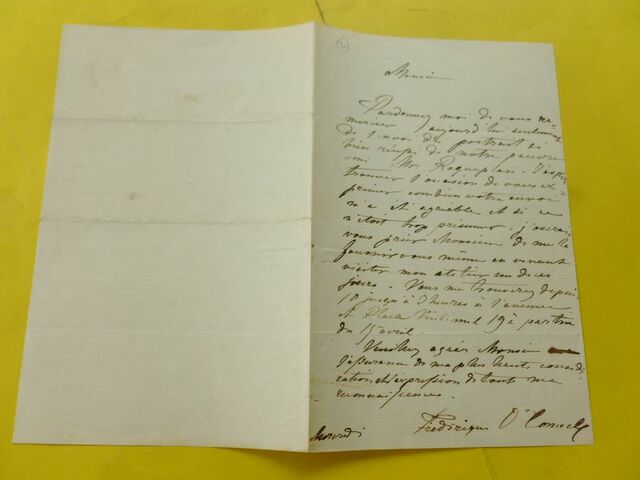 Monsieur
Pardonnez moi de vous re-
mercier aujourd'hui seulement
de l'envoi du portrait si
bien réussi de notre pauvre
ami Mr Roqueplan. J'espère
trouver l'occasion de vous ex-
primer combien votre envoi
m'a été agréable et si ce
n'était trop présumer, j'oserai
vous prier Monsieur de me la
fournir vous même en venant
visiter mon atelier un de ces
jours. Vous me trouverez depuis
10 jusqu'à 3 heures à l'avenue
Place Vintimil 19 à partir
du 15 avril.
Veuillez agréer Monsieur
l'assurance de ma plus haute considé-
ration et l'expression de toute ma
reconnaissance.
Frédérique O'Connell
Mercredi